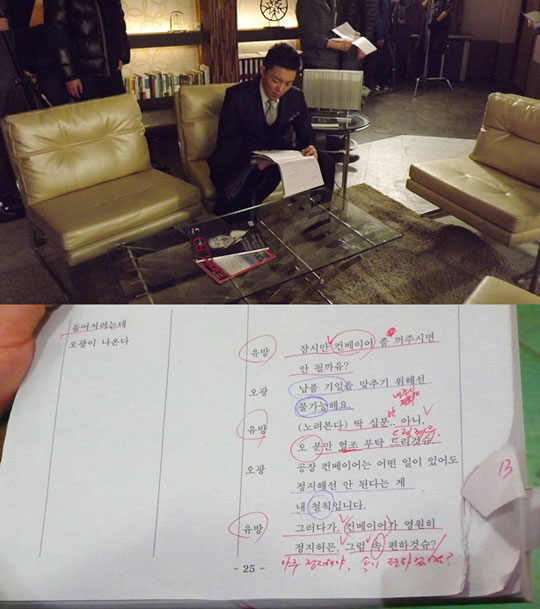 들어서려는데
오광이 나온다
유방 잠시만 컨베이어 좀 꺼주시면
안 될까유?
오광 납품 기일을 맞추기 위해선
불가능해요.
유방 (노려본다) 딱 십분.. 아니,
오 분만 협조 부탁 드리것슴
오광 공장 컨베이어는 어떤 일이 있어도
정지해선 안 된다는 게
내 철칙입니다.
유방 그러다가, 컨베이어가 영원히
정지허믄, 그럼 속 편하것슈?
13
- 25 -